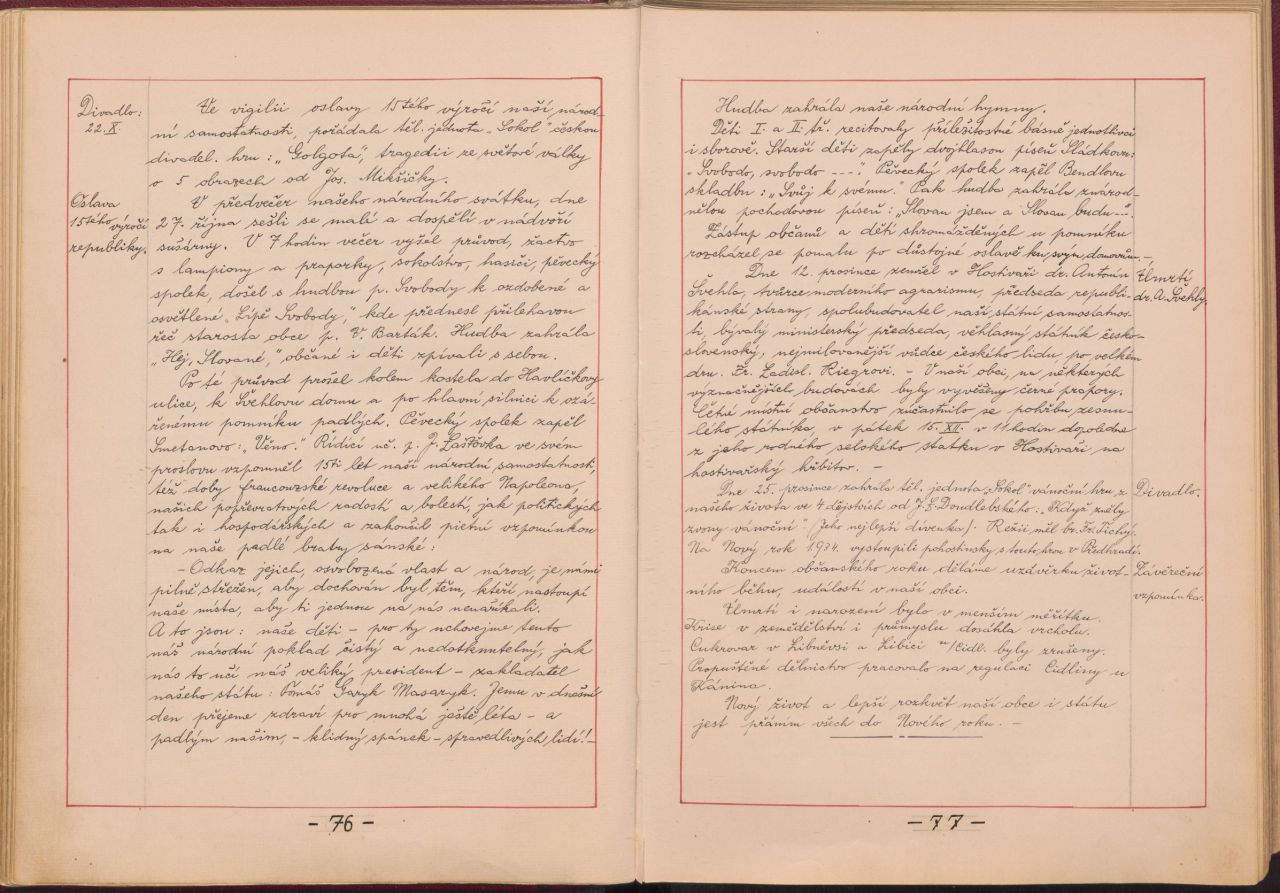 Divadlo:
22. X.
Ve vigilii oslavy 15tého výročí naší národ-
ní samostatnosti, pořádala těl. jednota „Sokol" českou
divadel. hru: „Golgota", tragedii ze světové války
o 5 obrazech od Jos. Mikšičky.
Oslava
15tého výročí
republiky.
V předvečer našeho národního svátku, dne
27. října sešli se malí a dospělí v nádvoří
sušárny. V 7 hodin večer vyšel průvod, žactvo
s lampiony a praporky, sokolstvo, hasiči, pěvecký
spolek, došel s hudbou p. Svobody k ozdobené a
osvětlené „Lípě Svobody," kde přednesl přiléhavou
řeč starosta obce p. V. Barták. Hudba zahrála
„Hej, Slované," občané i děti zpívali s sebou.
Po té průvod prošel kolem kostela do Havlíčkovy
ulice, k Švehlovu domu a po hlavní silnici k ozá-
řenému pomníku padlých. Pěvecký spolek zapěl
Smetanovo: „Věno". Řídící uč. p. J. Laštovka ve svém
proslovu vzpomněl 15ti let naší národní samostatnosti,
též doby francouzské revoluce a velikého Napoleona,
našich popřevratových radostí a bolestí, jak politických
tak i hospodářských a zakončil pietní vzpomínkou
na naše padlé bratry sánské:
– Odkaz jejich, osvobozená vlast a národ, je námi
pilně střežen, aby dochován byl těm, kteří nastoupí
naše místa, aby ti jednou na nás nenaříkali.
A to jsou: naše děti – pro ty uchovejme tento
náš národní poklad čistý a nedotknutelný, jak
nás to učí náš veliký president – zakladatel
našeho státu: Tomáš Garyk Masaryk. Jemu v dnešní
den přejeme zdraví pro mnohá ještě léta – a
padlým našim, – klidný spánek – spravedlivých lidí! –
- 76 -
Hudba zahrála naše národní hymny.
Děti I. a II. tř. recitovaly příležitostné básně jednotlivci
i sborově. Starší děti zapěly dvojhlasou píseň Sládkovu:
„Svobodo, svobodo ---." Pěvecký spolek zapěl Bendlovu
skladbu: „Svůj k svému." Pak hudba zahrála znárod-
nělou pochodovou píseň: „Slovan jsem a Slovan budu---".
Zástup občanů a dětí shromážděných u pomníku
rozcházel se pomalu po důstojné oslavě ku svým domovům. –
Dne 12. prosince zemřel v Hostivaři dr. Antonín
Švehla, tvůrce moderního agrarismu, předseda republi-
kánské strany, spolubudovatel naší státní samostatnos-
ti, bývalý ministerský předseda, věhlasný státník česko-
slovenský, nejmilovanější vůdce českého lidu, po velkém
dru. Fr. Ladisl. Riegrovi. – V naší obci, na některých
význačnějších budovách byly vyvěšeny černé prapory.
Četné místní občanstvo zúčastnilo se pohřbu zesnu-
lého státníka, v pátek 15. XII. v 11 hodin dopoledne
z jeho rodného selského statku v Hostivaři na
hostivařský hřbitov. –
Úmrtí
dr. A. Švehly
Dne 25. prosince zahrála těl. jednota „Sokol" vánoční hru, z
našeho života ve 4 dějstvích od J. E. Doudlebského: „Když zněly
zvony vánoční" (Jeho nejlepší dívenka). Režii měl br. Fr. Tichý.
Na Nový rok 1934. vystoupili pohostinsky s touto hrou v Předhradí.
Divadlo.
Koncem občanského roku děláme uzávěrku život-
ního běhu, událostí v naší obci.
Závěreční
vzpomínka.
Úmrtí i narození bylo v menším měřítku.
Krise v zemědělství i průmyslu dosáhla vrcholu.
Cukrovar v Libněvsi a Libici n/Cidl. byly zrušeny.
Propuštěné dělnictvo pracovalo na regulaci Cidliny u
Kánina.
Nový život a lepší rozkvět naší obce i státu
jest přáním všech do Nového roku. –
- 77 -